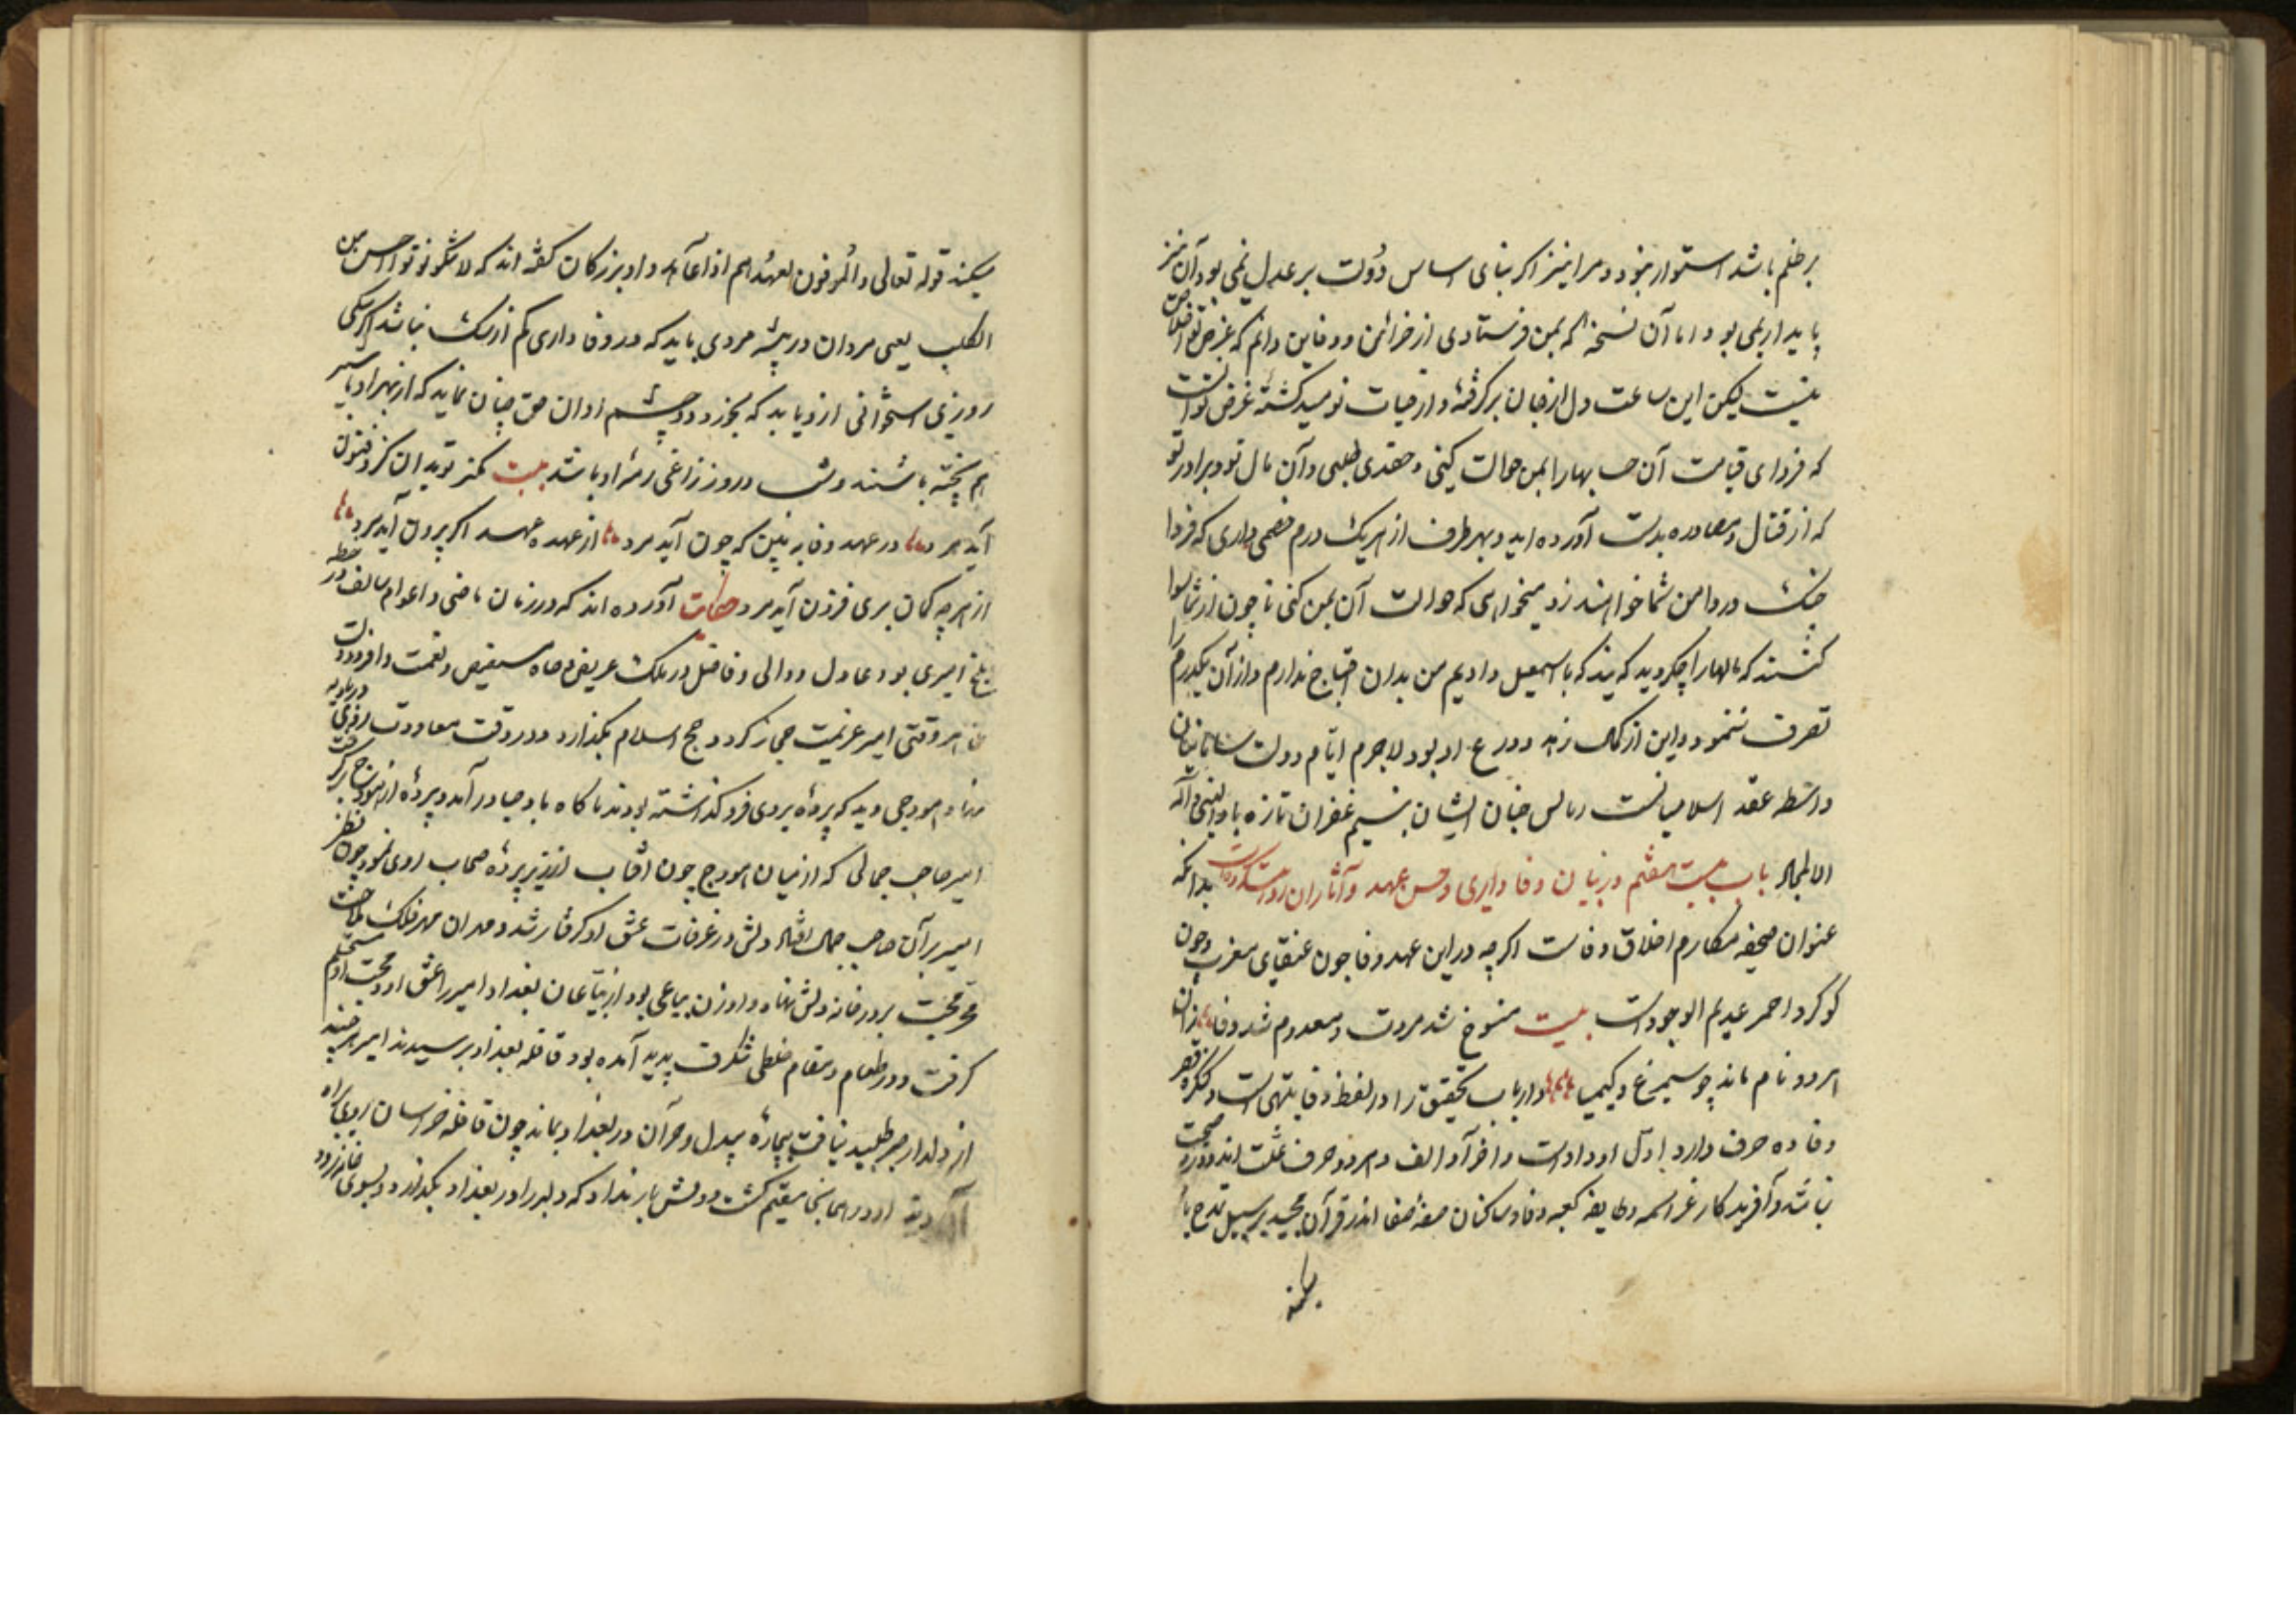 بر ظلم باشد استوار نبود و مرا نیز اکر بنای اساس دولت بر عدل نمی بود آن نیز
پایدار نمی بود اما آن نسخه که بمن فرستادی از خزائن و دفاین دانم که غرض تو اخلاص
نیست لیکن این ساعت دل از جان برکرفتهٔ و از حیات نومید کشتهٔ غرض تو آنست
که فردای قیامت آن حسابها را بمن حوالت کنی و حقدی طلبی و آن مال تو و برادر تو
که از قتال و مصادره بدست آورده اید و بهر طرف از هریک درم خصمی داری که فردا
چنک در دامن شما خواهند زد میخواهی که حوالت آن بمن کنی تا چون از شما سوال
کنند که مالها را چکردید کویند که باسمعیل دادیم من بدان احتیاج ندارم و از آن یکدرم را
تصرف ننمود و این از کمال زهد و ورع او بود لاجرم ایام دولت سامانیان
واسطه عقد اسلامیانست ریاض جنان ایشان بنسیم غفران تازه باد بالنبی و آله
الامجاد باب بیست هفتم در بیان وفاداری و حسن عهد و آثار ان بدانکه
عنوان صحیفه مکارم اخلاق وفاست اکرچه در این عهد وفا چون عنقای مغرب و چون
کوکرد احمر عدیم الوجود است بیت منسوخ شد مروت و معدوم شد وفا زان
هر دو نام ماند چو سیمرغ و کیمیا و ارباب تحقیق را در لفظ وفا تنبیهی است و کنکره قصر
وفا ده حرف دارد اول او واو است و اخر آو الف و هر دو حرف علت اند
نباشد و آفریدکار عز اسمه و طایفه کعبه وفا و ساکنان صفهٔ صفا اندر قرآن مجید بر سبیل مدح یاد
میکند
میکند قوله تعالی والموفون بعهدهم اذا عاهدوا و بزرکان کفته اند که لا تکونوا اخس من
الکلب یعنی مردان در پیشه مردی باید که در وفاداری کم از سک نباشد اکر سکی
روزی استخوانی از دیابد که بخورد و چشم او ان حق چنان نماید که از بهر او پاسبر
هم پخته باشند و شب و روز زاغی رمه او باشد بیت کمتر تو بدان کز و فنون
آید مرد در عهد وفا به بین که چون آید مرد از عهده عهد اکر برون آید مرد
از هر چه کمان بری فزون آید مرد حکایت آورده اند که در زمان ماضی و اعوام سالف در خطه
بلخ امیری بود عادل و والی و فاضل در ملک عریض و جاه مستفیض و نعمت وافر و دولت
وقتی امیر عزیمت حجاز کرد و حج اسلام بکذارد و در وقت معاودت روزی در بادیه
هودجی دید که پردهٔ بروی فرو کذاشته بودند ناکاه باد صبا در آمد و پردهٔ از هودج برکرفت
امیر صاحب جمالی که از میان هودج چون افتاب از زیر پردهٔ سحاب روی نمود چون نظر
امیر بر آن صاحب جمال افتاد دلش در غرقات عشق او کرفتار شد و مهر فلک ملاحت
محبت بر در خانه دلش نهاد و او زن بیاعی بود از بیاعان بغداد امیر را عشق او و محبت او مستحکم
کرفت و در طعام و مقام خللی شکرف پدید آمده بود قافله بغداد برسیدند امیر هر چند
از دلدار خبر طلبید نیافت بیچارهٔ بیدل و حیران در بغداد بماند چون قافله خراسان روی براه
آوردند او در همانجا مقیم کشت و دلش بار نداد که دلبر را در بغداد بکذارد و بسوی خانه رود